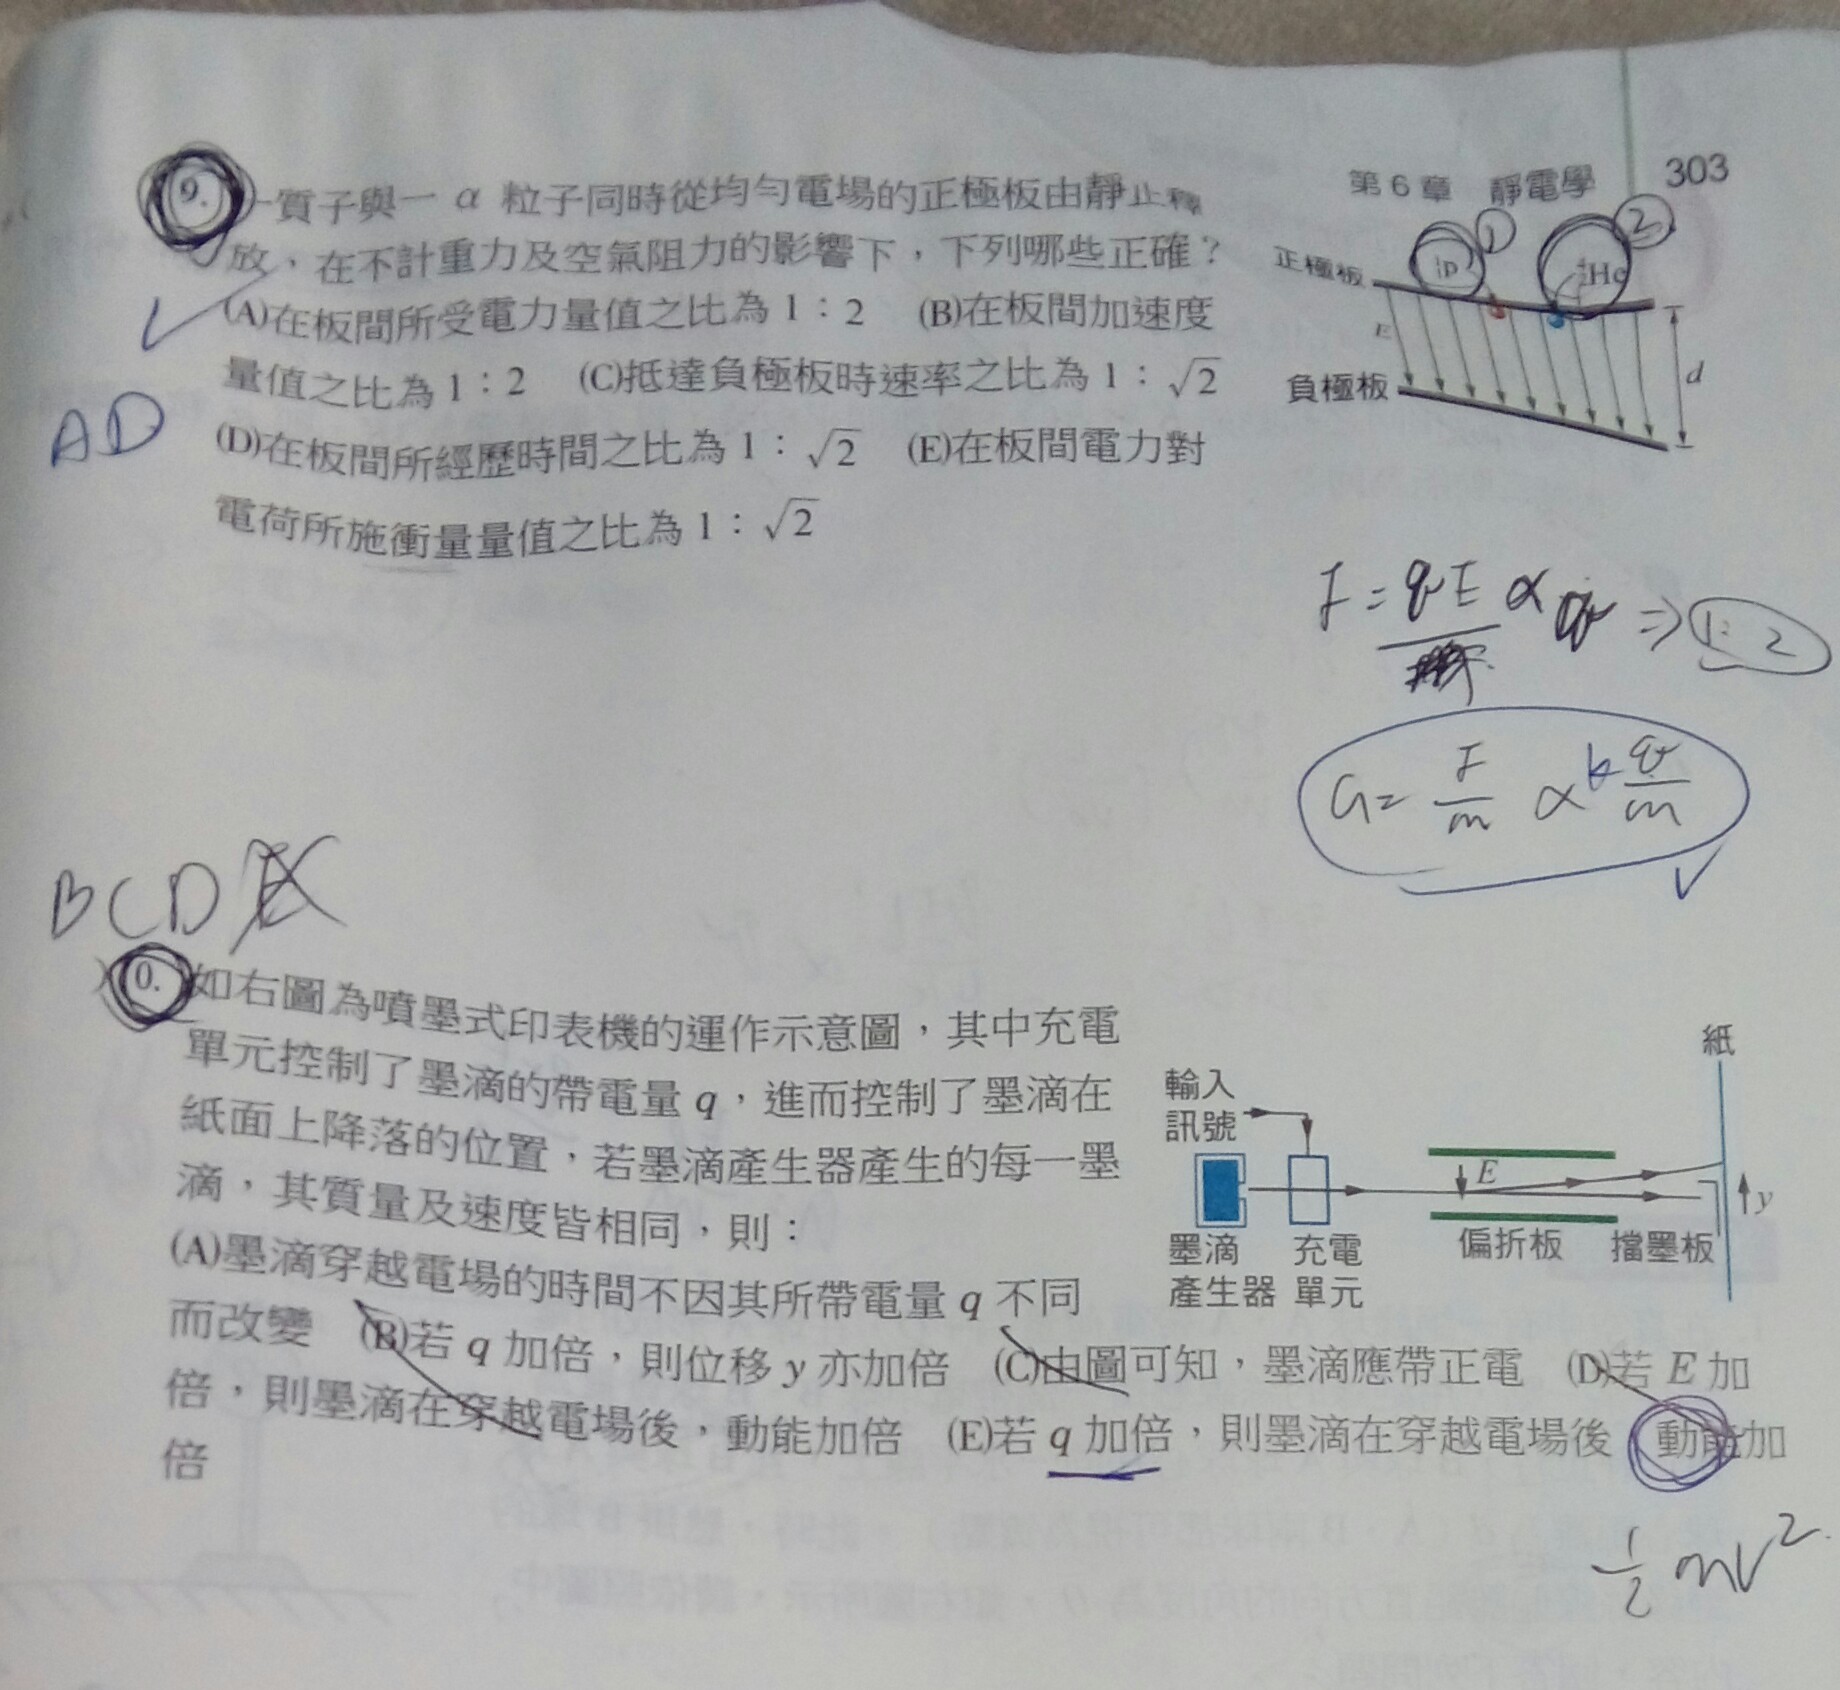 第6章 靜電學 303
9. 一質子與一 α 粒子同時從均勻電場的正極板由靜止釋
放,在不計重力及空氣阻力的影響下,下列哪些正確?
(A)在板間所受電力量值之比為 1:2 (B)在板間加速度
量值之比為 1:2 (C)抵達負極板時速率之比為 1:√2
(D)在板間所經歷時間之比為 1:√2 (E)在板間電力對
電荷所施衝量量值之比為 1:√2
AD
1 2
正極板 p He
E
負極板 d
F = qE α q ⇒ 1:2
a = F/m α q/m
BCD
0. 如右圖為噴墨式印表機的運作示意圖,其中充電
單元控制了墨滴的帶電量 q,進而控制了墨滴在
紙面上降落的位置,若墨滴產生器產生的每一墨
滴,其質量及速度皆相同,則:
(A)墨滴穿越電場的時間不因其所帶電量 q 不同
而改變 (B)若 q 加倍,則位移 y 亦加倍 (C)由圖可知,墨滴應帶正電 (D)若 E 加
倍,則墨滴在穿越電場後,動能加倍 (E)若 q 加倍,則墨滴在穿越電場後 動能加
倍
紙
輸入
訊號
E
y
墨滴 充電 偏折板 擋墨板
產生器 單元
1/2 mv²